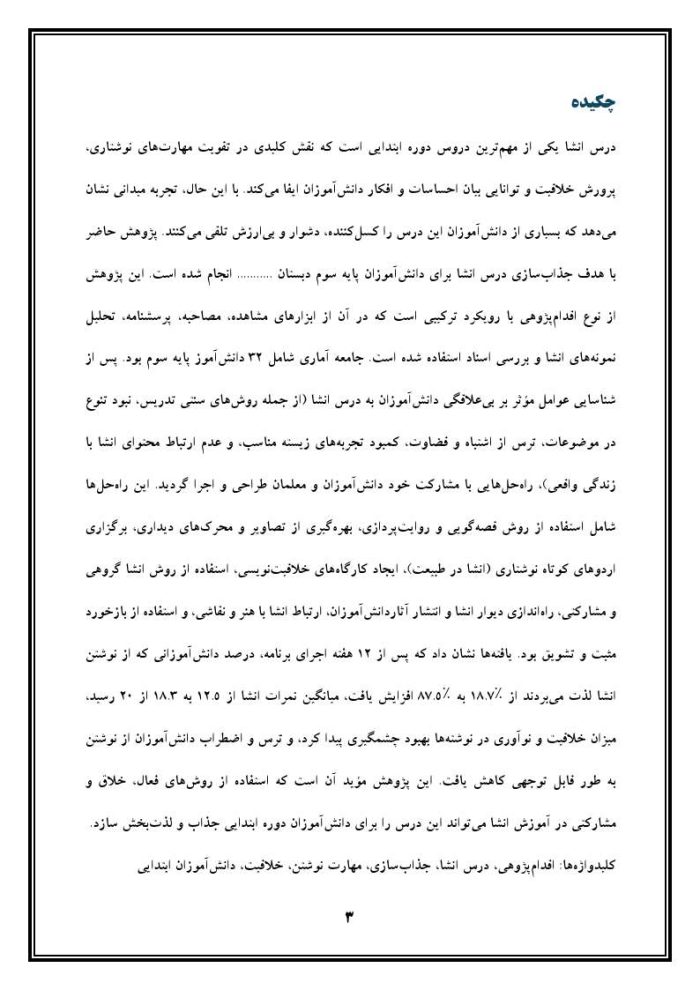 چکیده
درس انشا یکی از مهم‌ترین دروس دوره ابتدایی است که نقش کلیدی در تقویت مهارت‌های نوشتاری،
پرورش خلاقیت و توانایی بیان احساسات و افکار دانش‌آموزان ایفا می‌کند. با این حال، تجربه میدانی نشان
می‌دهد که بسیاری از دانش‌آموزان این درس را کسل‌کننده، دشوار و بی‌ارزش تلقی می‌کنند. پژوهش حاضر
با هدف جذاب‌سازی درس انشا برای دانش‌آموزان پایه سوم دبستان ........... انجام شده است. این پژوهش
از نوع اقدام‌پژوهی با رویکرد ترکیبی است که در آن از ابزارهای مشاهده، مصاحبه، پرسشنامه، تحلیل
نمونه‌های انشا و بررسی اسناد استفاده شده است. جامعه آماری شامل ۳۲ دانش‌آموز پایه سوم بود. پس از
شناسایی عوامل مؤثر بر بی‌علاقگی دانش‌آموزان به درس انشا (از جمله روش‌های سنتی تدریس، نبود تنوع
در موضوعات، ترس از اشتباه و قضاوت، کمبود تجربه‌های زیسته مناسب، و عدم ارتباط محتوای انشا با
زندگی واقعی)، راه‌حل‌هایی با مشارکت خود دانش‌آموزان و معلمان طراحی و اجرا گردید. این راه‌حل‌ها
شامل استفاده از روش قصه‌گویی و روایت‌پردازی، بهره‌گیری از تصاویر و محرک‌های دیداری، برگزاری
اردوهای کوتاه نوشتاری (انشا در طبیعت)، ایجاد کارگاه‌های خلاقیت‌نویسی، استفاده از روش انشا گروهی
و مشارکتی، راه‌اندازی دیوار انشا و انتشار آثاردانش‌آموزان، ارتباط انشا با هنر و نقاشی، و استفاده از بازخورد
مثبت و تشویق بود. یافته‌ها نشان داد که پس از ۱۲ هفته اجرای برنامه، درصد دانش‌آموزانی که از نوشتن
انشا لذت می‌بردند از ۱۸.۷٪ به ۸۷.۵٪ افزایش یافت، میانگین نمرات انشا از ۱۲.۵ به ۱۸.۳ از ۲۰ رسید،
میزان خلاقیت و نوآوری در نوشته‌ها بهبود چشمگیری پیدا کرد، و ترس و اضطراب دانش‌آموزان از نوشتن
به طور قابل توجهی کاهش یافت. این پژوهش مؤید آن است که استفاده از روش‌های فعال، خلاق و
مشارکتی در آموزش انشا می‌تواند این درس را برای دانش‌آموزان دوره ابتدایی جذاب و لذت‌بخش سازد.
کلیدواژه‌ها: اقدام‌پژوهی، درس انشا، جذاب‌سازی، مهارت نوشتن، خلاقیت، دانش‌آموزان ابتدایی
۳